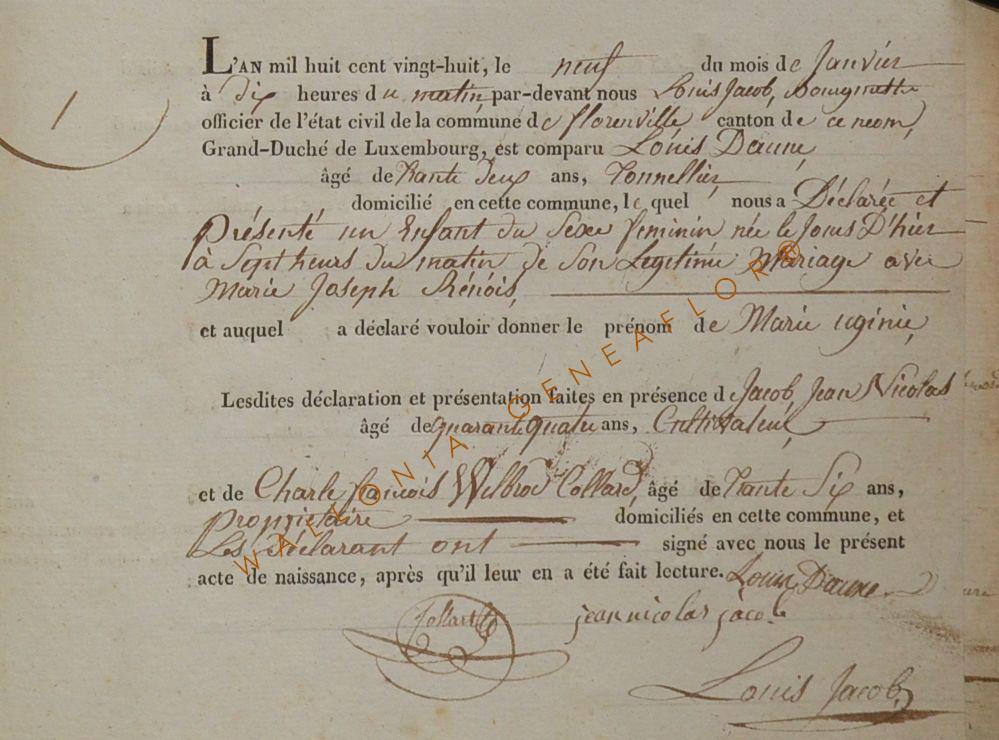 1
L'AN mil huit cent vingt-huit, le neuf du mois de Janvier
à Dix heures du matin par-devant nous Louis Jacob, Bourgmettre
officier de l'état civil de la commune de florenville canton de ce neom,
Grand-Duché de Luxembourg, est comparu Louis Daune,
âgé de trante deux ans, Tonnellier,
domicilié en cette commune, le quel nous a Déclarée et
Présenté un Enfant du Séxe feminin née le Jours D'hier
à Sept heurs du matin de Son Legitime Mariage avec
Marie Joseph Rénois,
et auquel a déclaré vouloir donner le prénom de Marie uginie,
Lesdites déclaration et présentation faites en présence de Jacob, Jean Nicolas
âgé de quarant quatre ans, Cultivateur,
et de Charle francois Wilbrod Collard, âgé de trante Six ans,
Proprietaire domiciliés en cette commune, et
Les Déclarant ont signé avec nous le présent
acte de naissance, après qu'il leur en a été fait lecture. Louis Daune
jean nicolas jacob
Collard
Louis Jacob,
WALLONIA GENEAFLOR®